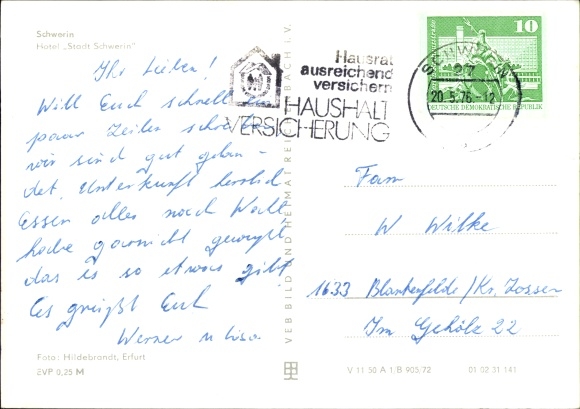 Schwerin
Hotel „Stadt Schwerin"
Ihr Lieben!
Will Euch schnell ein
paar Zeilen schreiben
wir sind gut gelan-
det. Unterkunft herrlich
Essen alles nach Wahl
habe garnicht gewußt
das es so etwas gibt
Es grüßt Euch
Werner u Lisa.
Foto: Hildebrandt, Erfurt
EVP 0,25 M
VEB BILD UND HEIMAT REICHENBACH I. V.
Hausrat
ausreichend
versichern
HAUSHALT
VERSICHERUNG
SCHWERIN
27
20.5.76-12
10
DEUTSCHE DEMOKRATISCHE REPUBLIK
Fam
W Wilke
1633 Blankenfelde/Kr. Zossen
Im Gehölz 22
V 11 50 A 1/B 905/72
01 02 31 141